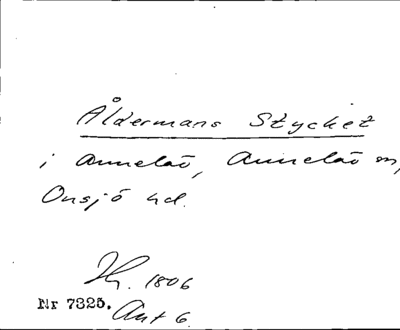 Åldermans Stycket
i Annelöv, Annelöv sn,
Onsjö hd.
1806
Nr 7325. Akt 6.